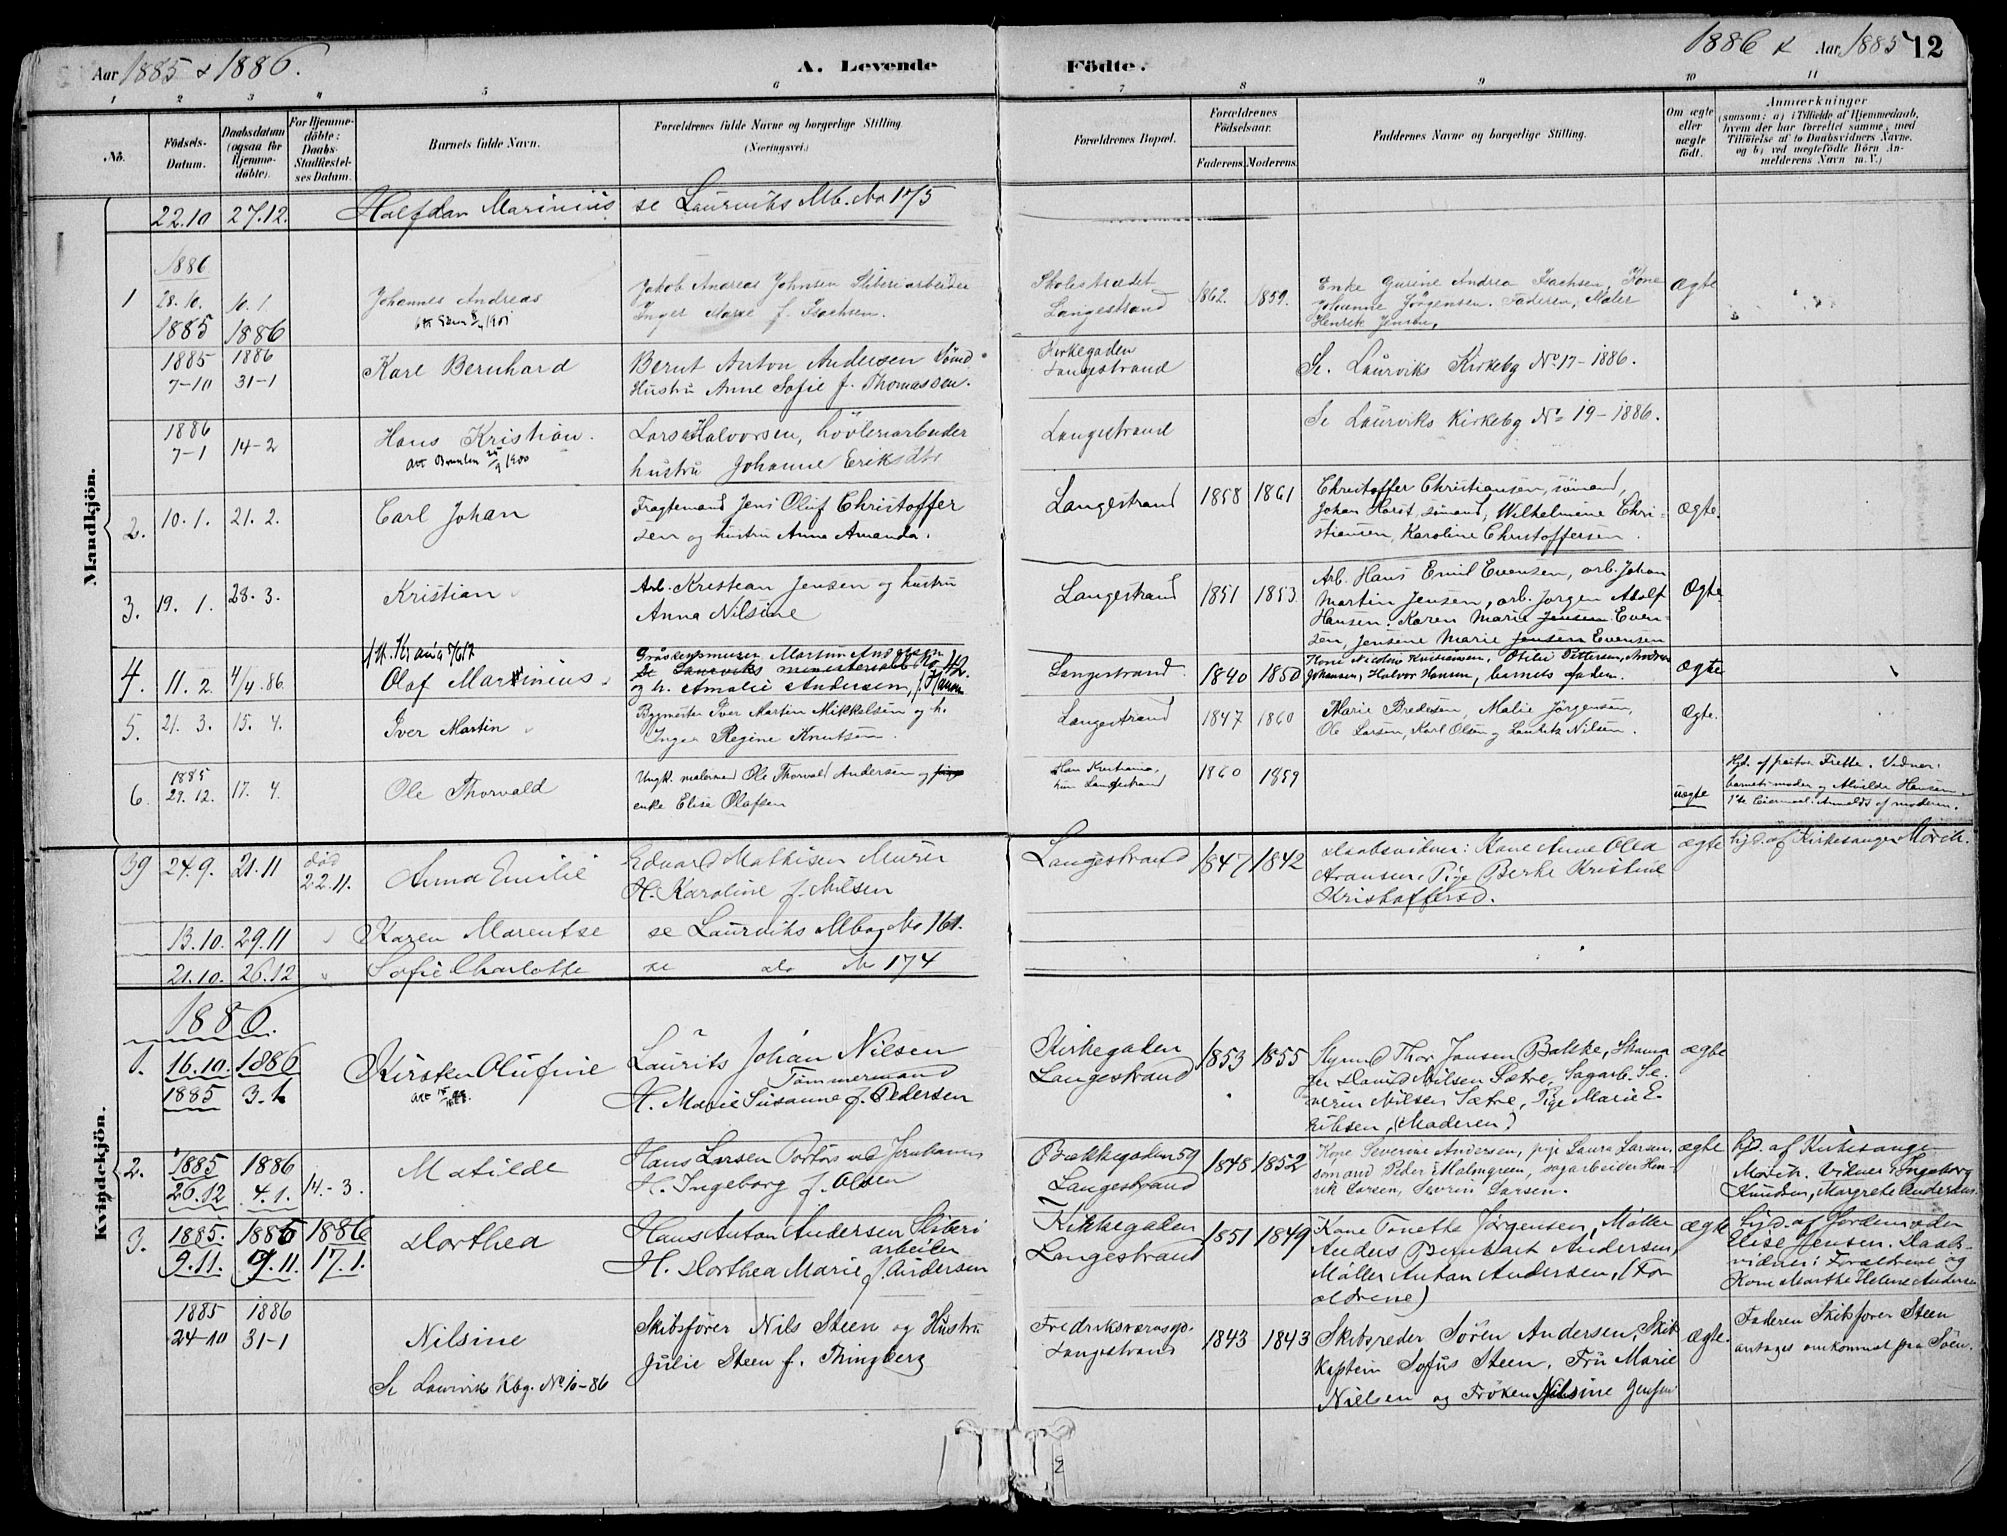 Aar 1885 & 1886.
A. Levende Födte.
1886 & Aar 1885 12
1 2 3 4 5 6 7 8 9 10 11
No.
Födsels-Datum.
Daabsdatum (ogsaa for Hjemme-döbte).
For Hjemme-döbte: Daabs-Stadfæstel-ses Datum.
Barnets fulde Navn.
Forældrenes fulde Navne og borgerlige Stilling (Næringsvei.)
Forældrenes Bopæl.
Forældrenes Födselsaar.
Faderens. Moderens.
Faddernes Navne og borgerlige Stilling.
Om ægte eller uægte födt.
Anmærkninger
(saasom: a) i Tilfælde af Hjemmedaab, hvem der har forrettet samme, med Tilföielse af to Daabsvidners Navne. og b) ved uægtefödte Börn An-melderens Navn m. V.)
Mandkjön.
22.10 27.12. Halfdan Marinius se Laurviks Mb. No 175
1886
1 28.10. 10.1 Johannes Andreas
1885 1886
Jakob Andreas Johnsen Sliberiarbeider
Inger Marie f. Isachsen.
Skolestrædet
Langestrand
1862. 1859.
Enke Gurine Andrea Isachsen, Kone
Johanne Jörgensen. Faderen, Maler
Henrik Jensen,
Ægte
1885 1886
7-10 31-1 Karl Bernhard
Bernt Anton Andersen Sömd
Hustru Anne Sofie f. Thomassen.
Kirkegaden
Langestrand
Se. Laurviks Kirkebg No 17-1886.
1886
7-1 14-2 Hans Kristian.
Lars Halvorsen, hövleriarbeider
hustru Johanne Eriksdtr
Langestrand
Se Laurviks Kirkebg No 19-1886.
2. 10.1. 21.2. Carl Johan
Fragtemand Jens Oluf Christoffer
sen og hustru Anna Amanda.
Langestrand 1858 1861
Christoffer Christiansen, sömand,
Johan Horst, sömand, Wilhelmine Chri-
stiansen, Karoline Christoffersen.
Ægte.
3. 19.1. 28.3. Kristian
Arb. Kristian Jensen og hustru
Anna Nilsine
Langestrand 1851 1853
Arb. Hans Emil Evensen, arb. Johan
Martin Jensen, arb. Jörgen Adolf
Hansen. Karen Marie Jensen Even-
sen, Jensine Marie Jensen Evensen
Ægte
4. 11.2. 4/4.86. Olaf Martinius
Gråstensmurer Martin Andersen
Se Laurviks ministerialb No 42.
og h. Amalie Andersen, f. Hansen
Langestrand. 1840 1850
Kone Nicoline Kristiansen, Otilie Pettersen, Andreas
Johansen, Halvor Hansen, barnets fader.
Ægte
5. 21.3. 15.4. Iver Martin
Bygmester Iver Martin Mikkelsen og h.
Inga Regine Knutsen
Langestrand 1847 1860
Marie Bredesen, Malie Jörgensen,
Ole Larsen, Karl Olsen og Lauritz Nilsen.
Ægte.
1885
6. 29.12. 17.4. Ole Thorvald
Ungk. malersvend Ole Thorvald Andersen og pige
enke Elise Olafsen
Han Kristiania,
hun Langestrand
1860 1859
uægte
Hjd. af pastor Frette. Vidner:
barnets moder og Alvilde Hansen
1ste Leiermaal. Anmeldt af moderen.
39 24.9. 21.11 död 22.11. Anna Emilie
Edvard Mathisen Murer
H. Karoline f. Nilsen
Langestrand 1847 1842
Daabsvidner: Kone Anne Olea
Aronsen, Pige Berthe Kristine
Kristoffersd.
ægte hjd. af Kirkesanger Mörch.
13.10. 29.11 Karen Marentse se Laurviks Mbog No 161.
21.10. 26.12 Sofie Charlotte se do No 174
Kvindekjön.
1886.
1. 16.10. 1886
1885 3.1. Kirsten Olufine
Laurits Johan Nilsen
Tömmermand
H. Marie Susanne f. Pedersen
Kirkegaden
Langestrand
1853 1855
Styrmd Thor Jansen Bakke, Skoma
ger David Nilsen Sætre, Sagarb. Se-
verin Nilsen Sætre, Pige Marie E-
rilsen, (Moderen)
ægte
2. 1885 1886
26.12 4.1. 14.-3. Matilde
Hans Larsen
H. Ingeborg f. Olsen
Bækkegaden 59
Langestrand
1848 1852
Kone Severine Andersen, pige Laura Larsen
sömand Peder Malmgreen, sagarbeider Hen-
rik Larsen, Severin Larsen.
ægte
hjd. af Kirkesanger
Mörch. Vidner: Ingeborg
Knudsen, Margrete Andersen.
3. 1885. 1885 1886
9.11. 9.11. 17.1. Dorthea
Hans Anton Andersen Sliberi
arbeider
H. Dorthea Marie f. Andersen
Kirkegaden
Langestrand
1851 1849
Kone Tonette Jörgensen, Möller
Anders Bernhart Andersen,
Möller Anton Andersen, (For
ældrene)
ægte
hjd. af Jordemoder
Elise Jensen. Daabs-
vidner: Forældrene og
Kone Marthe Helene Andersen
1885 1886
24-10 31-1 Nilsine
Se Laurviks Kbg. No 10-86
Skibsförer Nils Steen og Hustru
Julie Steen f. Thingberg
Fredriksværnsgd.
Langestrand
1843 1843
Skibsreder Sören Andersen, Skibs
kaptein Sofus Steen, Fru Marie
Nielsen og Fröken Nilsine Jensen
Ægte.
Faderen Skibsförer Steen
antages omkommet paa Söen.